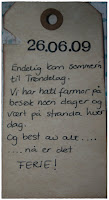 26.06.09
Endelig kom sommern
til Trøndelag.
Vi har hatt farmor på
besøk noen dager og
vært på stranda hver
dag.
Og best av alt....
....nå er det
FERIE!